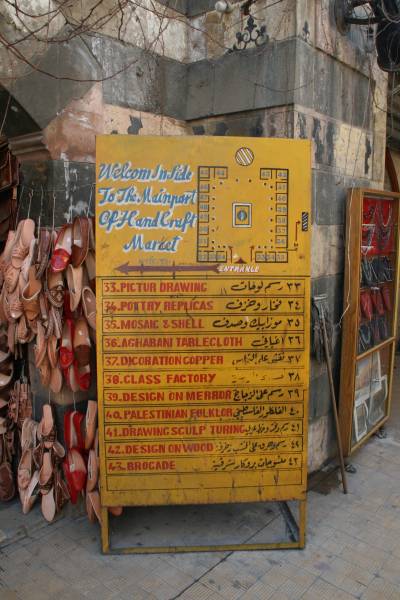 Welcom Inside
To The Mainport
Of HandCraft
Market
ENTRANCE
33. PICTUR DRAWING رسم لوحات ٣٣
34. POTTRY REPLICAS فخار وخزف ٣٤
35. MOSAIC & SHELL موزاييك وصدف ٣٥
36. AGHABANI TABLECLOTH اغباني ٣٦
37. DICORATION COPPER ٣٧
38. GLASS FACTORY ٣٨
39. DESIGN ON MERROR رسم على الزجاج ٣٩
40. PALESTINIAN FULKLOR الفلكلور الفلسطيني ٤٠
41. DRAWING SCULP TURING ٤١
42. DESIGN ON WOOD ٤٢
43. BROGADE منسوجات بروكار شرقية ٤٣